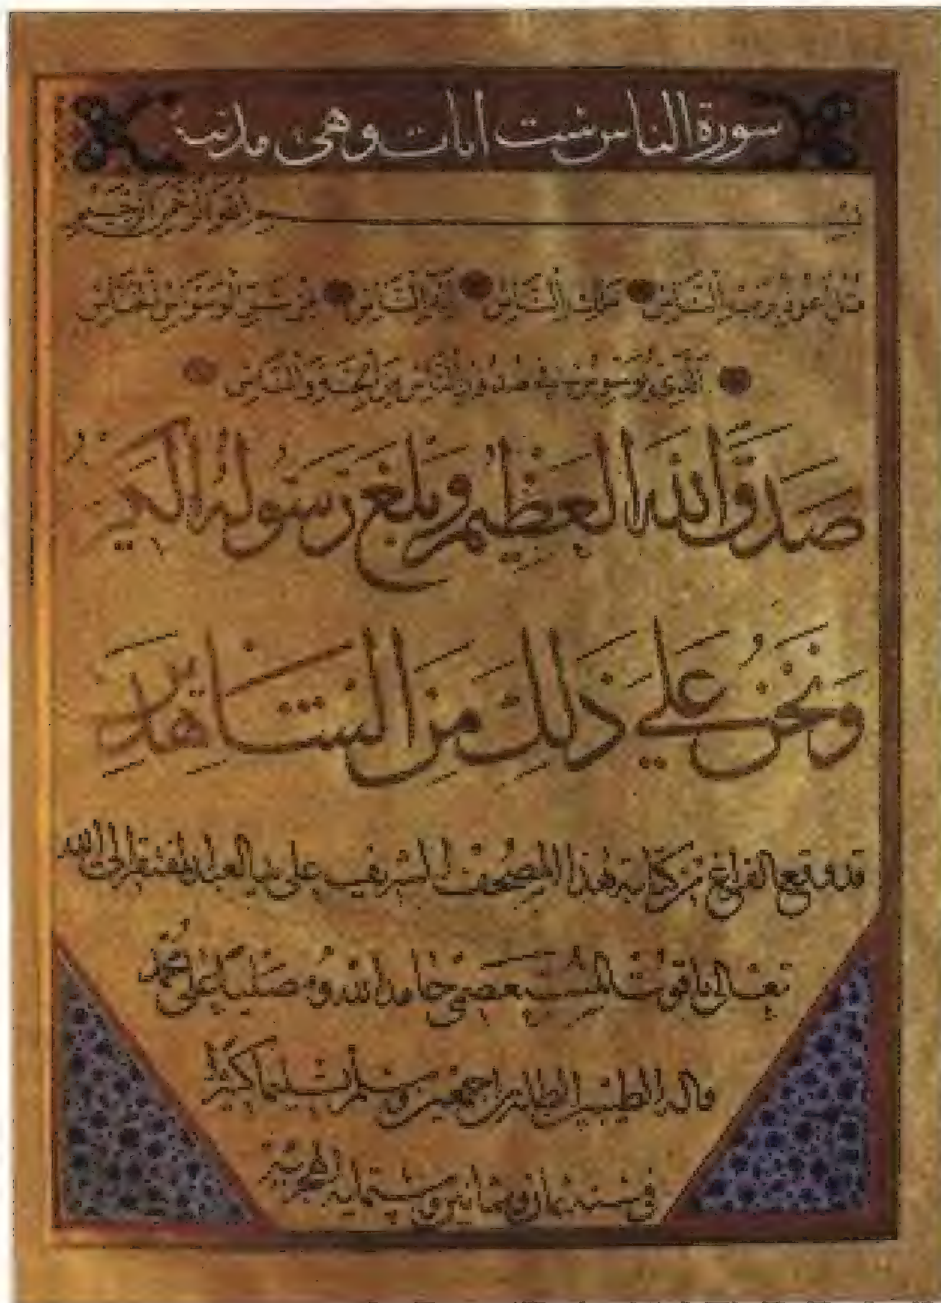 سورة الناس ست ايات وهى مدنية
بسم الله الرحمن الرحيم
قُلْ أَعُوذُ بِرَبِّ النَّاسِ مَلِكِ النَّاسِ إِلَهِ النَّاسِ مِن شَرِّ الْوَسْوَاسِ الْخَنَّاسِ
الَّذِي يُوَسْوِسُ فِي صُدُورِ النَّاسِ مِنَ الْجِنَّةِ وَالنَّاسِ
صَدَقَ اللهُ الْعَظِيمُ وَبَلَّغَ رَسُولُهُ الْكَرِيمُ
وَنَحْنُ عَلَى ذَلِكَ مِنَ الشَّاهِدِينَ
قد وقع الفراغ من كتابة هذا المصحف الشريف على يد العبد المفتقر الى الله
تعالى ياقوت المستعصمي حامدا لله ومصليا على محمد
واله الطيبين الطاهرين اجمعين وسلم تسليما كثيرا
في سنة ثمان وثمانين وستمايه الهجرية